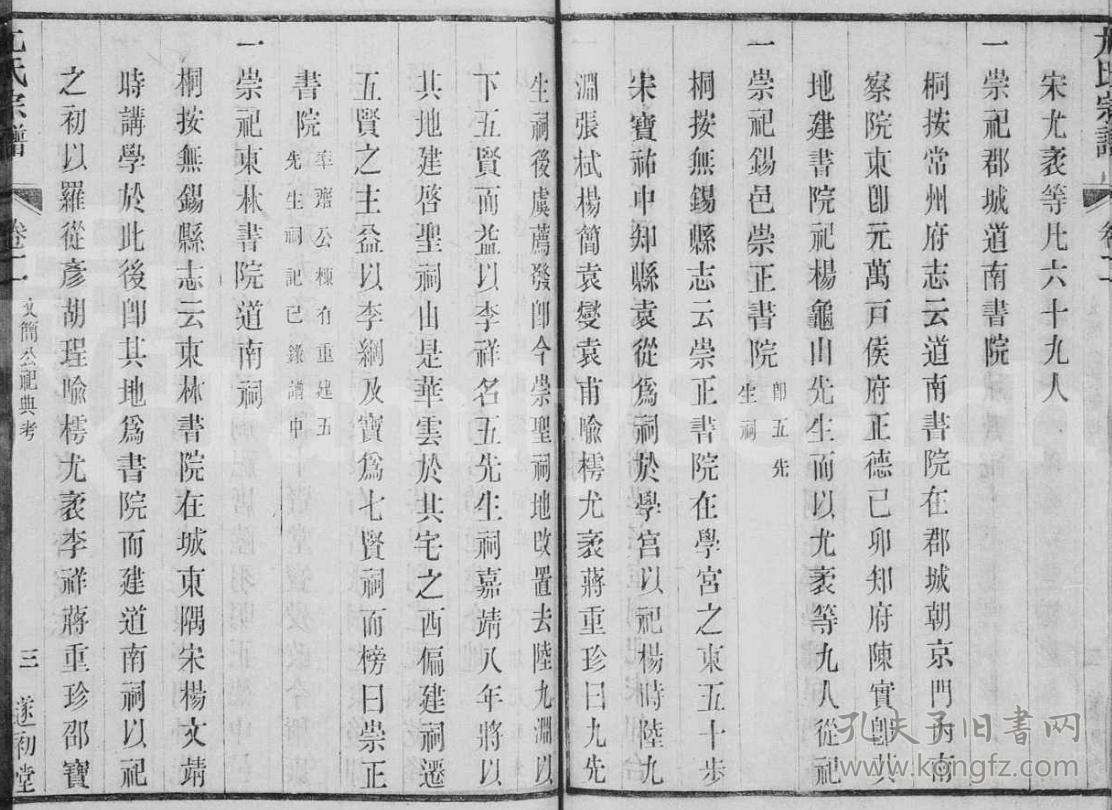 宋尤袤等凡六十九人
一崇祀郡城道南書院
桐按常州府志云道南書院在郡城朝京門內南
察院東卽元萬戸侯府正德己卯知府陳實卽其
地建書院祀楊龜山先生而以尤袤等九人從祀
一崇祀錫邑崇正書院卽五先生祠
桐按無錫縣志云崇正書院在學宮之東五十步
宋寶祐中知縣袁從爲祠於學宮以祀楊時陸九
淵張栻楊簡袁燮袁甫喩樗尤袤蔣重珍曰九先
生祠後虞薦發卽今崇聖祠地改置去陸九淵以
下五賢而益以李祥名五先生祠嘉靖八年將以
其地建啓聖祠由是華雲於其宅之西偏建祠遷
五賢之主益以李綱及寶爲七賢祠而榜曰崇正
書院華齋公棟有重建五先生祠記已錄譜中
一崇祀東林書院道南祠
桐按無錫縣志云東林書院在城東隅宋楊文靖
時講學於此後卽其地爲書院而建道南祠以祀
之初以羅從彥胡珵喩樗尤袤李祥蔣重珍邵寶
尤氏宗譜
卷二
文簡公祀典考
三
遂初堂
孔夫子旧书网
www.kongfz.com